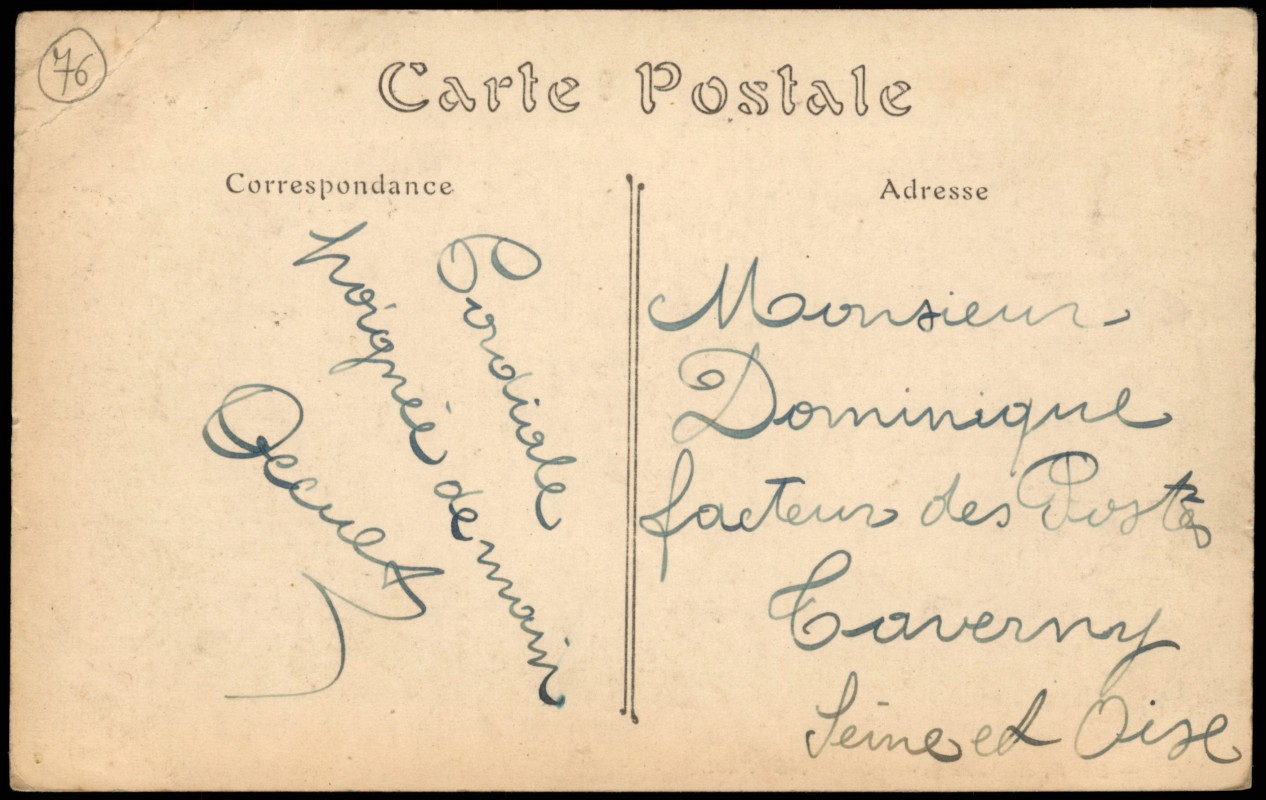 76
Carte Postale
Correspondance
Cordiale
poignée de main
Adresse
Monsieur
Dominique
facteur des Postes
Taverny
Seine et Oise